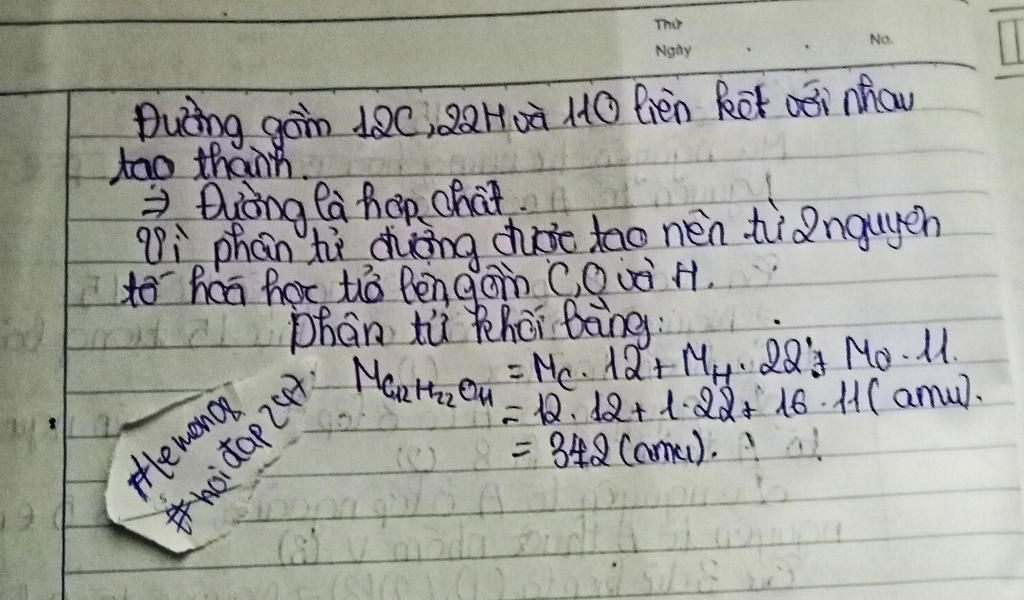 Thứ
Ngày . . No.
Đường gồm 12C, 22H và 11O liên kết với nhau
tạo thành.
⇒ Đường là hợp chất.
Vì phân tử đường được tạo nên từ 2 nguyên
tố hoá học trở lên gồm C, O và H.
Phân tử khối bằng:
MC12H22O11 = MC . 12 + MH . 22 + MO . 11.
= 12 . 12 + 1 . 22 + 16 . 11 ( amu).
= 342 (amu).
#lemon08
#hỏi đáp 247